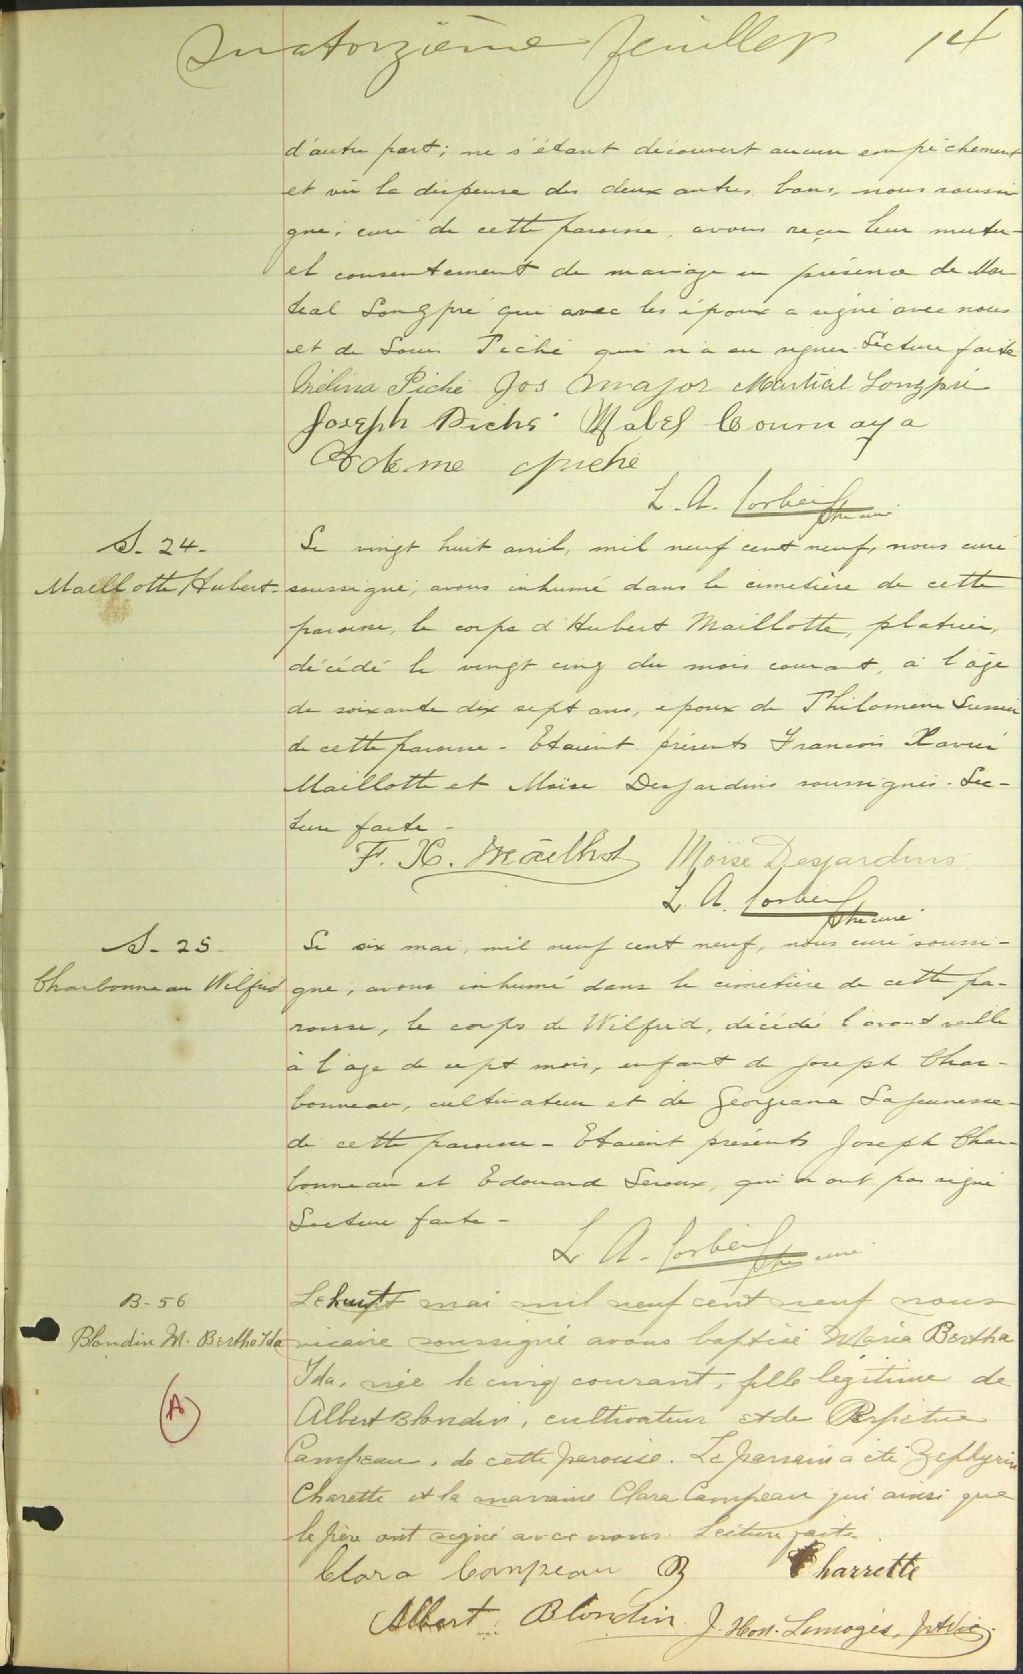 Quatorzième feuillet 14
d'autre part; ne s'étant découvert aucun empêchement
et vu la dispense des deux autres bans, nous soussi
gné, curé de cette paroisse, avons reçu leur mutu-
el consentement de mariage en présence de Mar
tial Longpré qui avec les époux a signé avec nous
et de Louis Piché qui n'a su signer. Lecture faite
Mélina Piché Jos Major Martial Longpré
Joseph Piché Mabel Cournaya
Piché
L. A. Corbeil Ptre curé
S. 24.
Maillotte Hubert.
Le vingt huit avril, mil neuf cent neuf, nous curé
soussigné, avons inhumé dans le cimetière de cette
paroisse, le corps d'Hubert Maillotte, platrier,
décédé le vingt cinq du mois courant, à l'âge
de soixante dix sept ans, époux de Philomène
de cette paroisse - Etaient présents François Xavier
Maillotte et Moïse Desjardins soussignés. Lec-
ture faite -
F. X. Moïse Desjardins
L. A. Corbeil Ptre curé
S. 25
Charbonneau Wilfrid
Le six mai, mil neuf cent neuf, nous curé soussi-
gné, avons inhumé dans le cimetière de cette pa-
roisse, le corps de Wilfrid, décédé l'avant veille
à l'age de sept mois, enfant de Joseph Char-
bonneau, cultivateur et de Georgiana Lajeunesse
de cette paroisse - Etaient présents Joseph Char-
bonneau et Edouard Leroux, qui n'ont pas signé
Lecture faite -
L. A. Corbeil Ptre curé
B-56
Blondin M. Bertha Ida
A
Le huit mai mil neuf cent neuf nous
vicaire soussigné avons baptisé Maria Bertha
Ida, née le cinq courant, fille légitime de
Albert Blondin, cultivateur et de Perpétue
Campeau, de cette paroisse. Le parrain a été Zephyrin
Charette et la marraine Clara Campeau qui ainsi que
le père ont signé avec nous. Lecture faite.
Clara Campeau Z Charrette
Albert Blondin J. Limoges, ptre Vic.